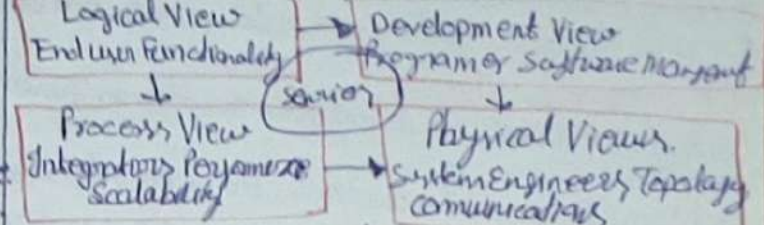 Logical View
End user Functionality
Development View
Programer Software
senior
Process View
Integrators
Scalability
Physical Views.
System Engineers, Topology
comunications